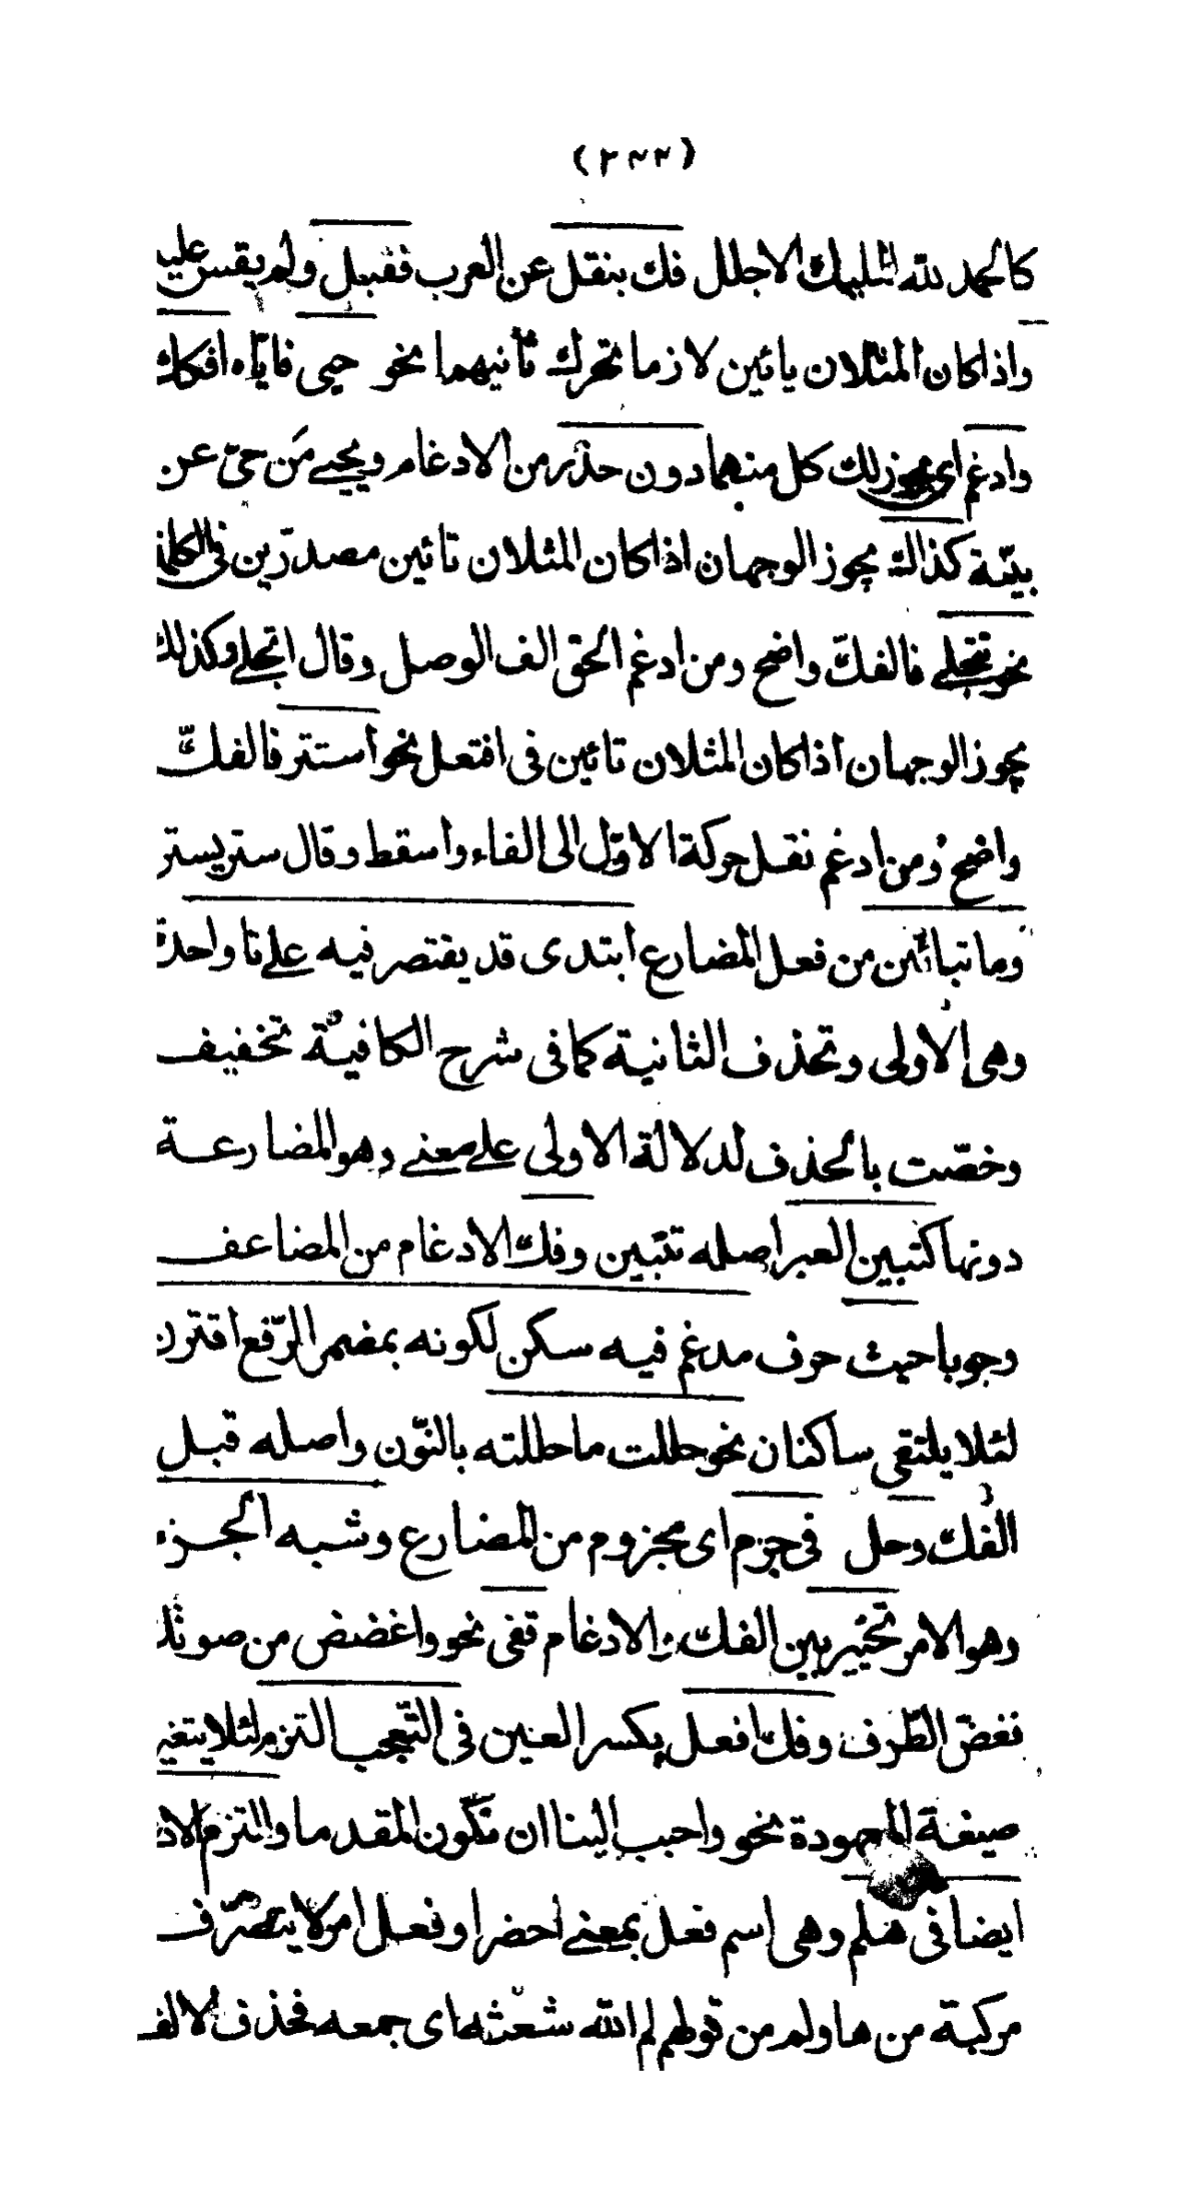 (٢٣٢)
كالحمد لله المليك الاجلل فك بنقل عن العرب فقبل ولم يقس عليه
واذا كان المثلان يائين لازما تحرك ثانيهما نحو حيى فاياه افكك
وادغم اى يجوز لك كل منهما دون حذر من الادغام ويحيى من حىّ عن
بيّنة كذاك يجوز الوجهان اذا كان المثلان تائين مصدرين فى الكلمة
نحو تتجلى فالفكّ واضح ومن ادغم الحق الف الوصل وقال اتجلى وكذلك
يجوز الوجهان اذا كان المثلان تائين فى افتعل نحو استتر فالفكّ
واضح ومن ادغم نقل حركة الاوّل الى الفاء واسقط وقال ستر يستر
وما بتائين من فعل المضارع ابتدى قد يقتصر فيه على تا واحدة
وهى الاولى وتحذف الثانية كما فى شرح الكافية تخفيف
وخصّت بالحذف لدلالة الاولى على معنى وهو المضارعة
دونها كتبين العبر اصله تتبين وفك الادغام من المضاعف
وجوبا حيث حرف مدغم فيه سكن لكونه بمضمر الرّفع اقترن
لئلا يلتقى ساكنان نحو حللت ما حللته بالنّون واصله قبل
الفك وحل فى جزم اى مجزوم من المضارع وشبه الجزم
وهو الامر تخيير بين الفك والادغام قفى نحو واغضض من صوتك
فغضّ الطّرف وفك افعل بكسر العين فى التّعجب التزم لئلا يتغير
صيغة المعهودة نحو واحبب الينا ان تكون المقدما والتزم الاد
ايضا فى هلم وهى اسم فعل بمعنى احضر او فعل امر لا يتصرّف
مركبة من ها ولم من قولهم لم الله شعثه اى جمعه فحذف الالف